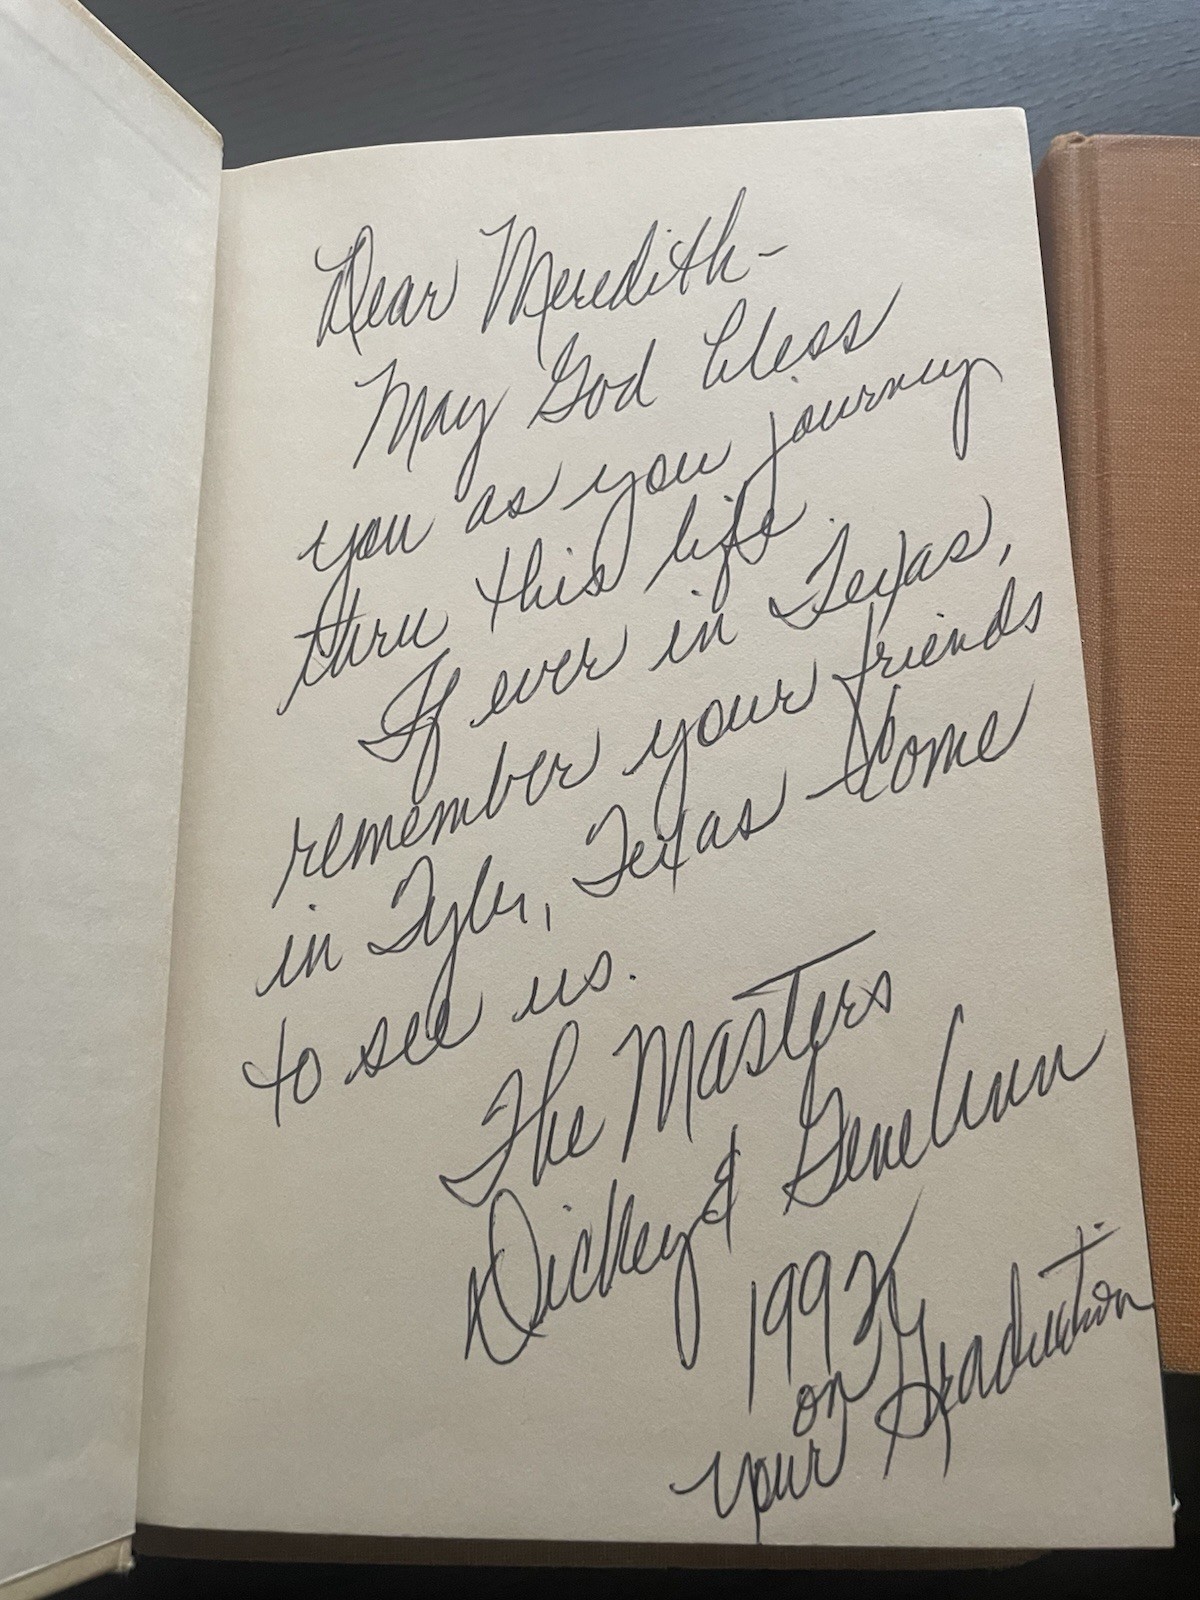 Dear Meredith-
May God bless
you as you journey
thru this life.
If ever in Texas,
remember your friends
in Tyler, Texas - come
to see us.
The Masters
Dickey & Gene Ann
1992
on
your Graduation